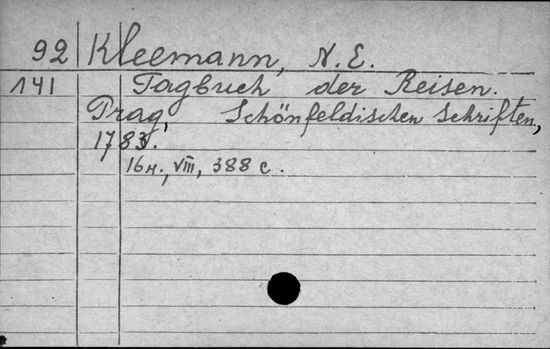 92 Kleemann, N. E.
141 Tagbuch der Reisen.
Prag, Schönfeldischen Schriften,
1783.
16н., VIII, 388 с.